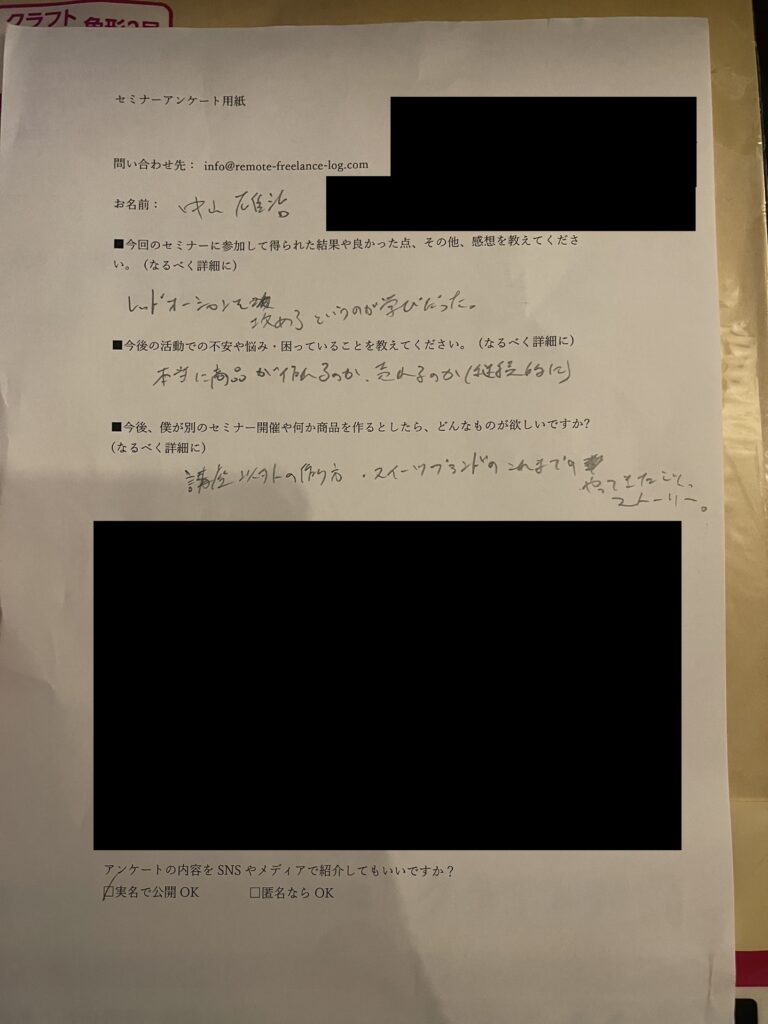 クラフト 角形2号
セミナーアンケート用紙
問い合わせ先： info@remote-freelance-log.com
お名前： 中山 雄治
■今回のセミナーに参加して得られた結果や良かった点、その他、感想を教えてくださ
い。（なるべく詳細に）
レッドオーシャンを
攻めろ というのが学びだった。
■今後の活動での不安や悩み・困っていることを教えてください。（なるべく詳細に）
本当に商品が作れるのか、売れるのか(継続的に)
■今後、僕が別のセミナー開催や何か商品を作るとしたら、どんなものが欲しいですか?
(なるべく詳細に)
講座以外の作り方 ・スイーツブランドのこれまでの
やってきたこと、
ストーリー。
アンケートの内容を SNS やメディアで紹介してもいいですか？
☑実名で公開 OK □匿名なら OK